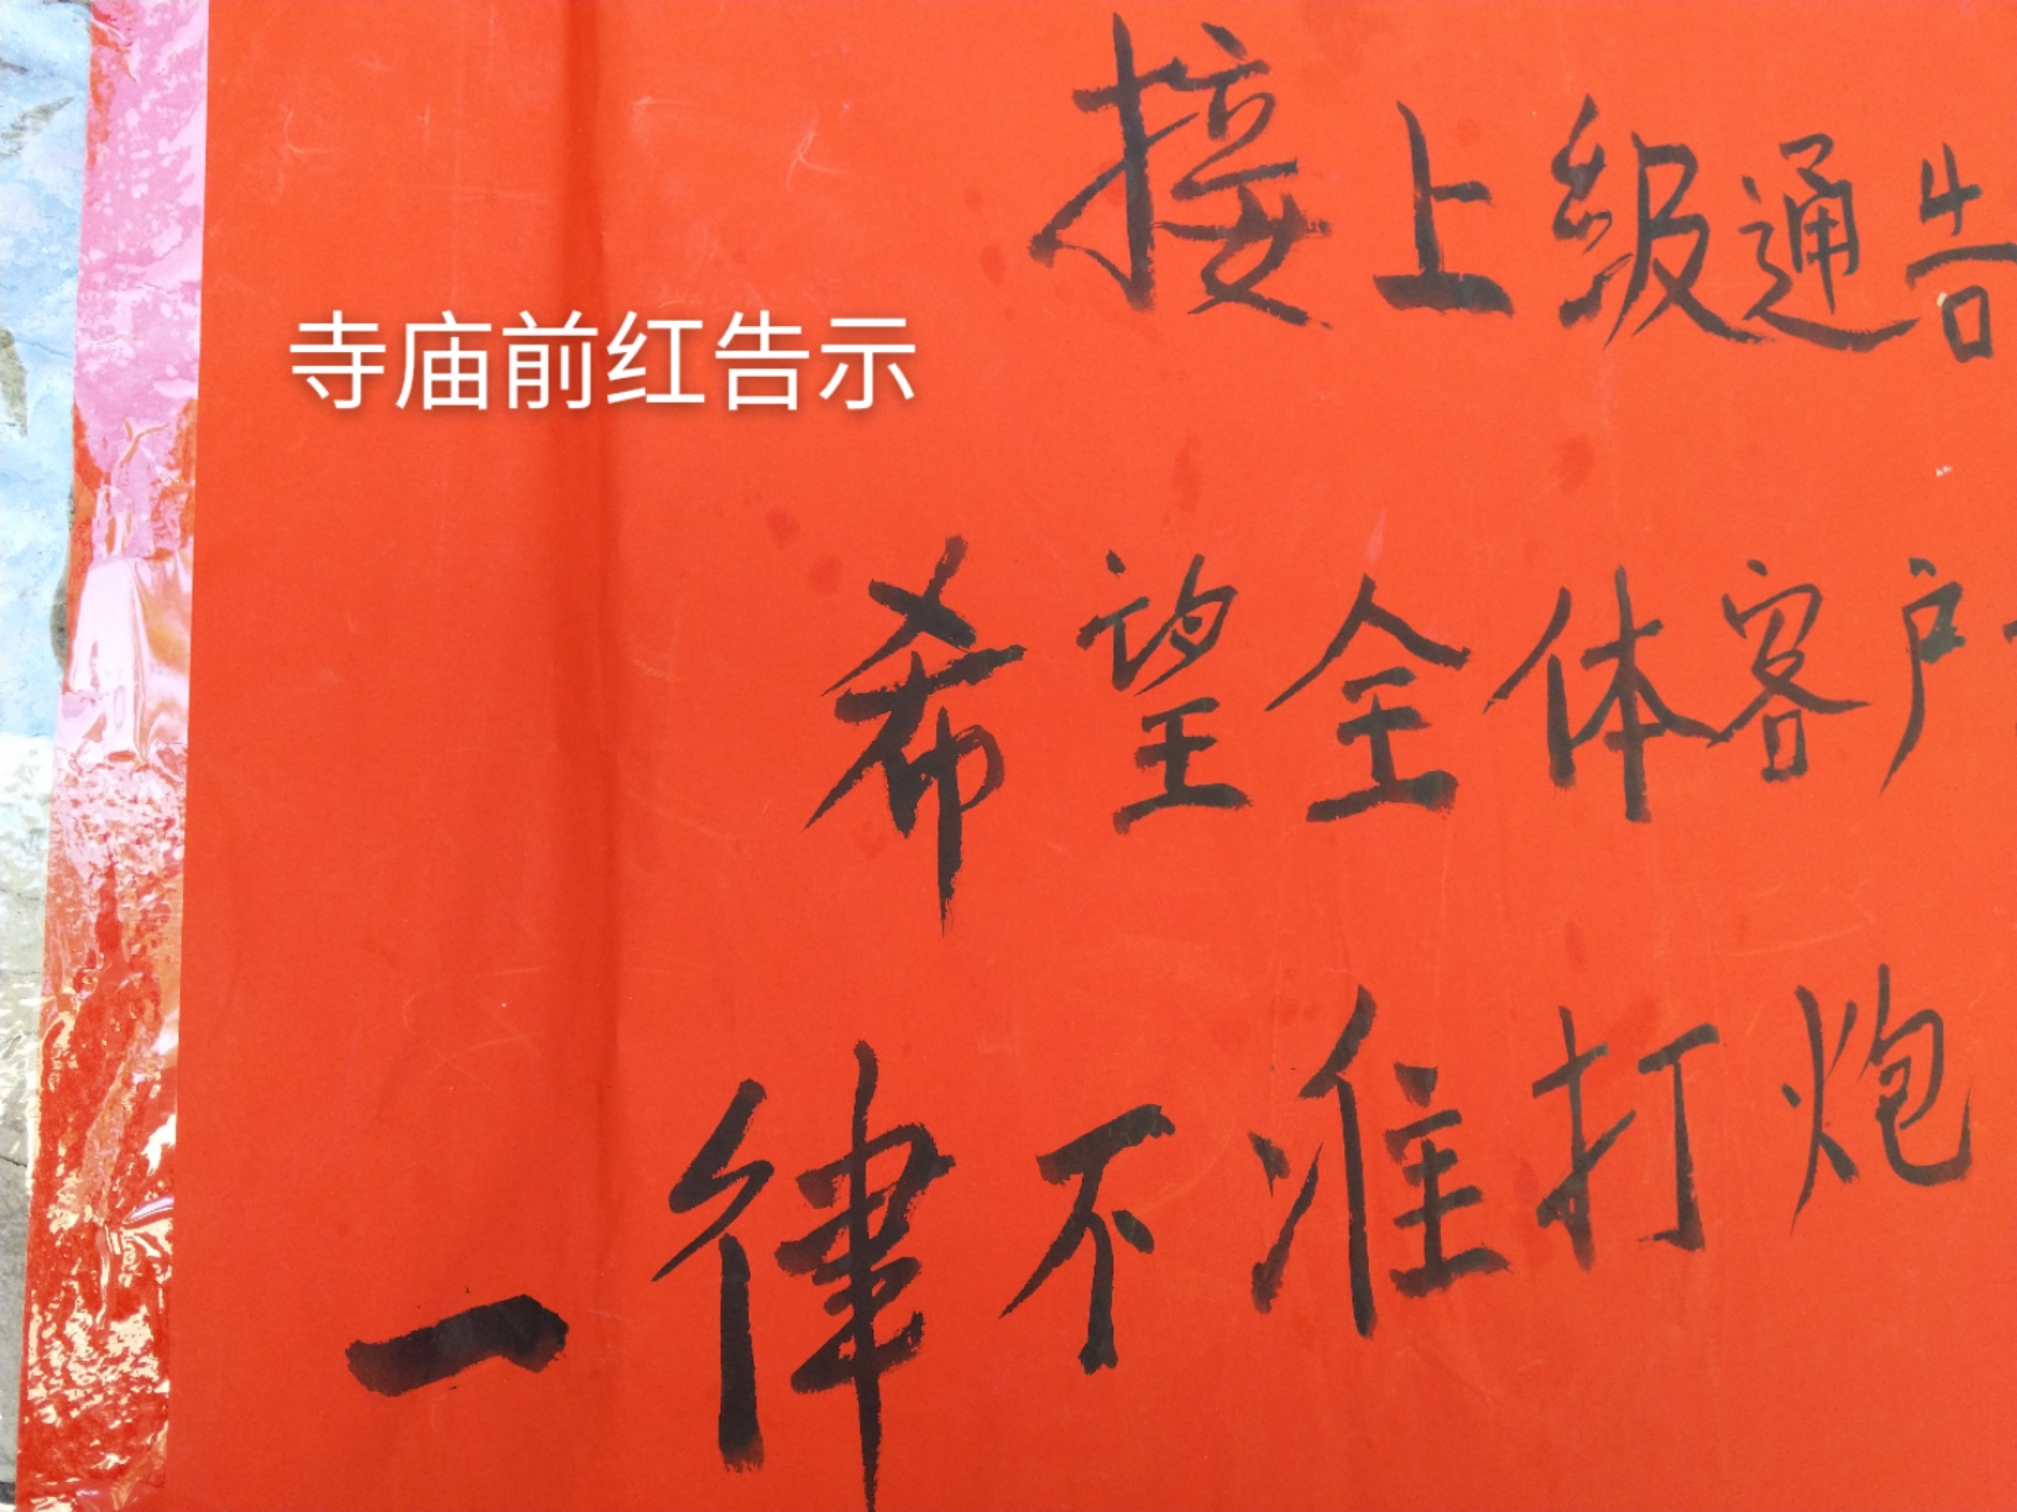 接上级通告
寺庙前红告示
希望全体客户
一律不准打炮